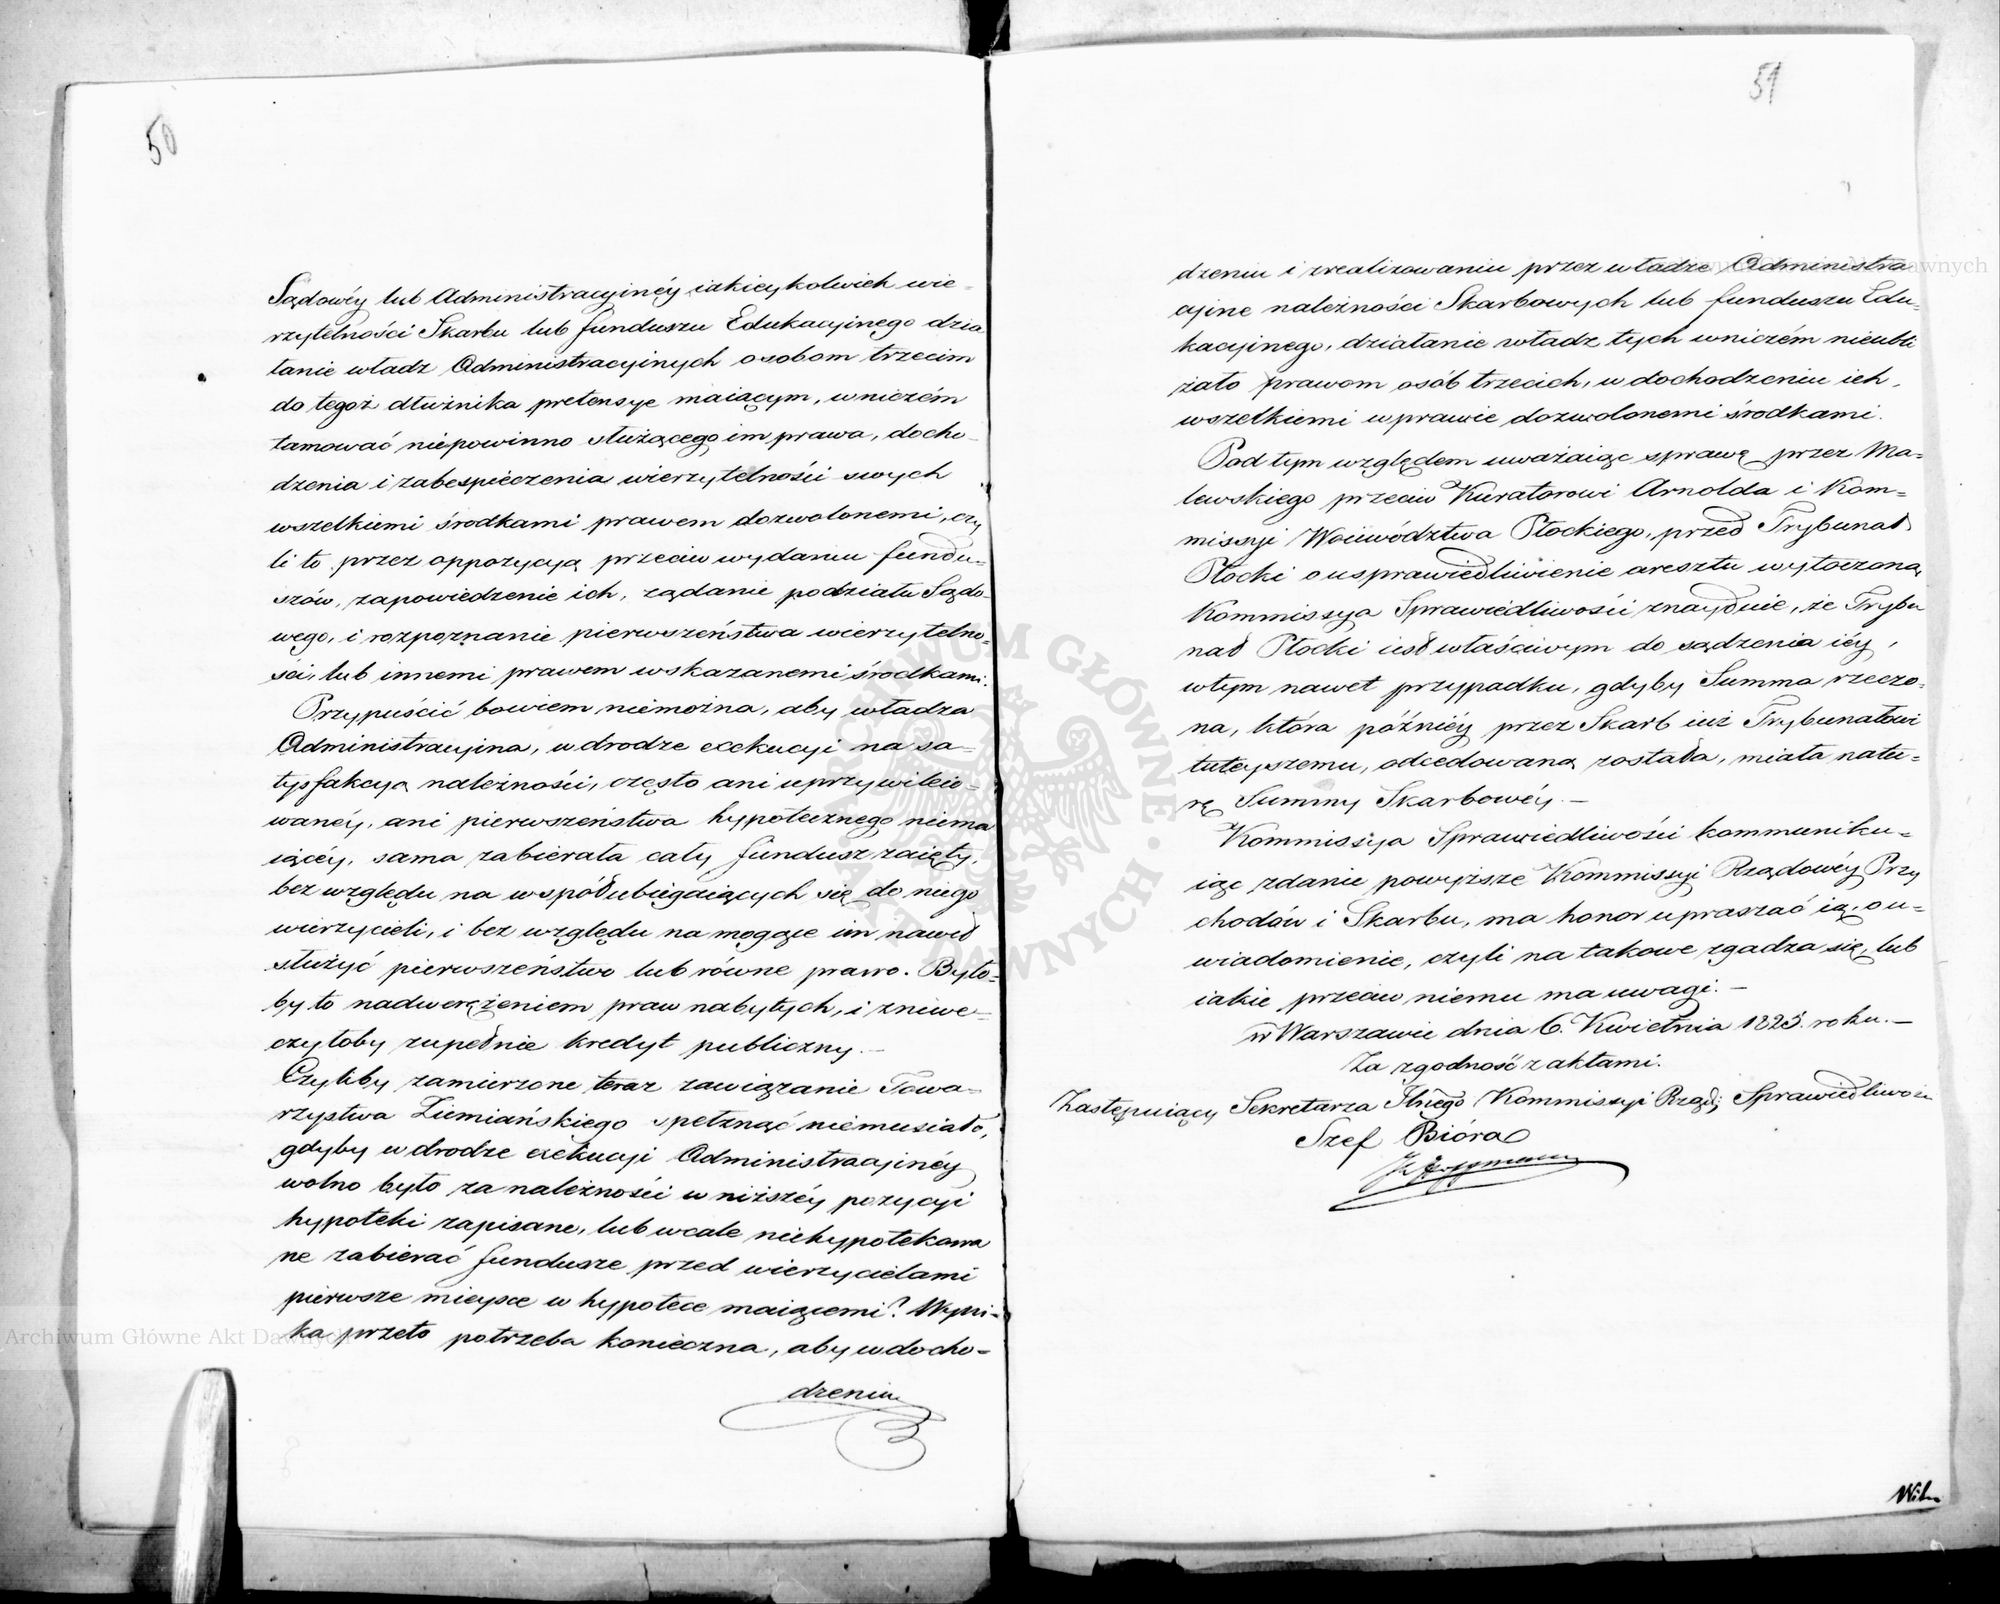 50
Sądowéy lub Administracyinéy iakieykolwiek wie-
rzytelności Skarbu lub funduszu Edukacyinego dzia
łanie władz Administracyinych osobom trzecim
do tegoż dłużnika pretensye maiącym, wniczém
tamować niepowinno służącego im prawa, docho-
dzenia i zabespieczenia wierzytelności swych
wszelkiemi środkami prawem dozwolonemi, czy
li to przez oppozycyą przeciw wydaniu fundu-
szów, zapowiedzenie ich, żądanie podziału Sądo-
wego, i rozpoznanie pierwszeństwa wierzytelno-
ści, lub innemi prawem wskazanemi środkami.
Przypuścić bowiem niemożna, aby władza
Administracyina, w drodze exekucyi na sa-
tysfakcyą należności, często ani uprzywileio-
wanéy, ani pierwszeństwa hypotecznego niema
iącéy, sama zabierała cały fundusz zaięty,
bez względu na współubiegaiących się do niego
wierzycieli, i bez względu na mogące im nawet
służyć pierwszeństwo lub równe prawo. Było-
by to nadwerężeniem praw nabytych, i zniwe-
czyłoby zupełnie kredyt publiczny.—
Czyliby zamierzone teraz zawiązanie Towa-
rzystwa Ziemiańskiego spełznąć niemusiało,
gdyby w drodze exekucyi Administracyinéy
wolno było za należności w niższéy pozycyi
hypoteki zapisane, lub wcale niehypotekowa
ne zabierać fundusze przed wierzycielami
pierwsze mieysce w hypotece maiącemi? Wyni-
ka przeto potrzeba konieczna, aby w docho-
dzeniu
51
dzeniu i zrealizowaniu przez władze Administra
cyine należności Skarbowych lub funduszu Edu-
kacyinego, działanie władz tych wniczém nieubli
żało prawom osób trzecich, w dochodzeniu ich,
wszelkiemi w prawie dozwolonemi środkami.
Pod tym względem uważaiąc sprawę przez Ma-
lewskiego przeciw Kuratorowi Arnolda i Kom-
missyi Woiewództwa Płockiego, przed Trybunał
Płocki o usprawiedliwienie aresztu wytoczoną
Kommissya Sprawiedliwości znayduie, że Trybu
nał Płocki iest właściwym do sądzenia iéy,
w tym nawet przypadku, gdyby Summa rzeczo-
na, która późniéy przez Skarb iuż Trybunałowi
tuteyszemu, odcedowaną została, miała natu-
rę Summy Skarbowéy.—
Kommissya Sprawiedliwości kommuniku-
iąc zdanie powyższe Kommissyi Rządowéy Przy
chodów i Skarbu, ma honor upraszać ią, o u-
wiadomienie, czyli na takowe zgadza się, lub
iakie przeciw niemu ma uwagi.—
w Warszawie dnia 6. Kwietnia 1825. roku.—
Za zgodność z aktami.
Zastępuiący Sekretarza Jlnego Kommissyi Rządj Sprawiedliwości
Szef Bióra
Archiwum Główne Akt Dawnych
ARCHIWUM GŁÓWNE AKT DAWNYCH